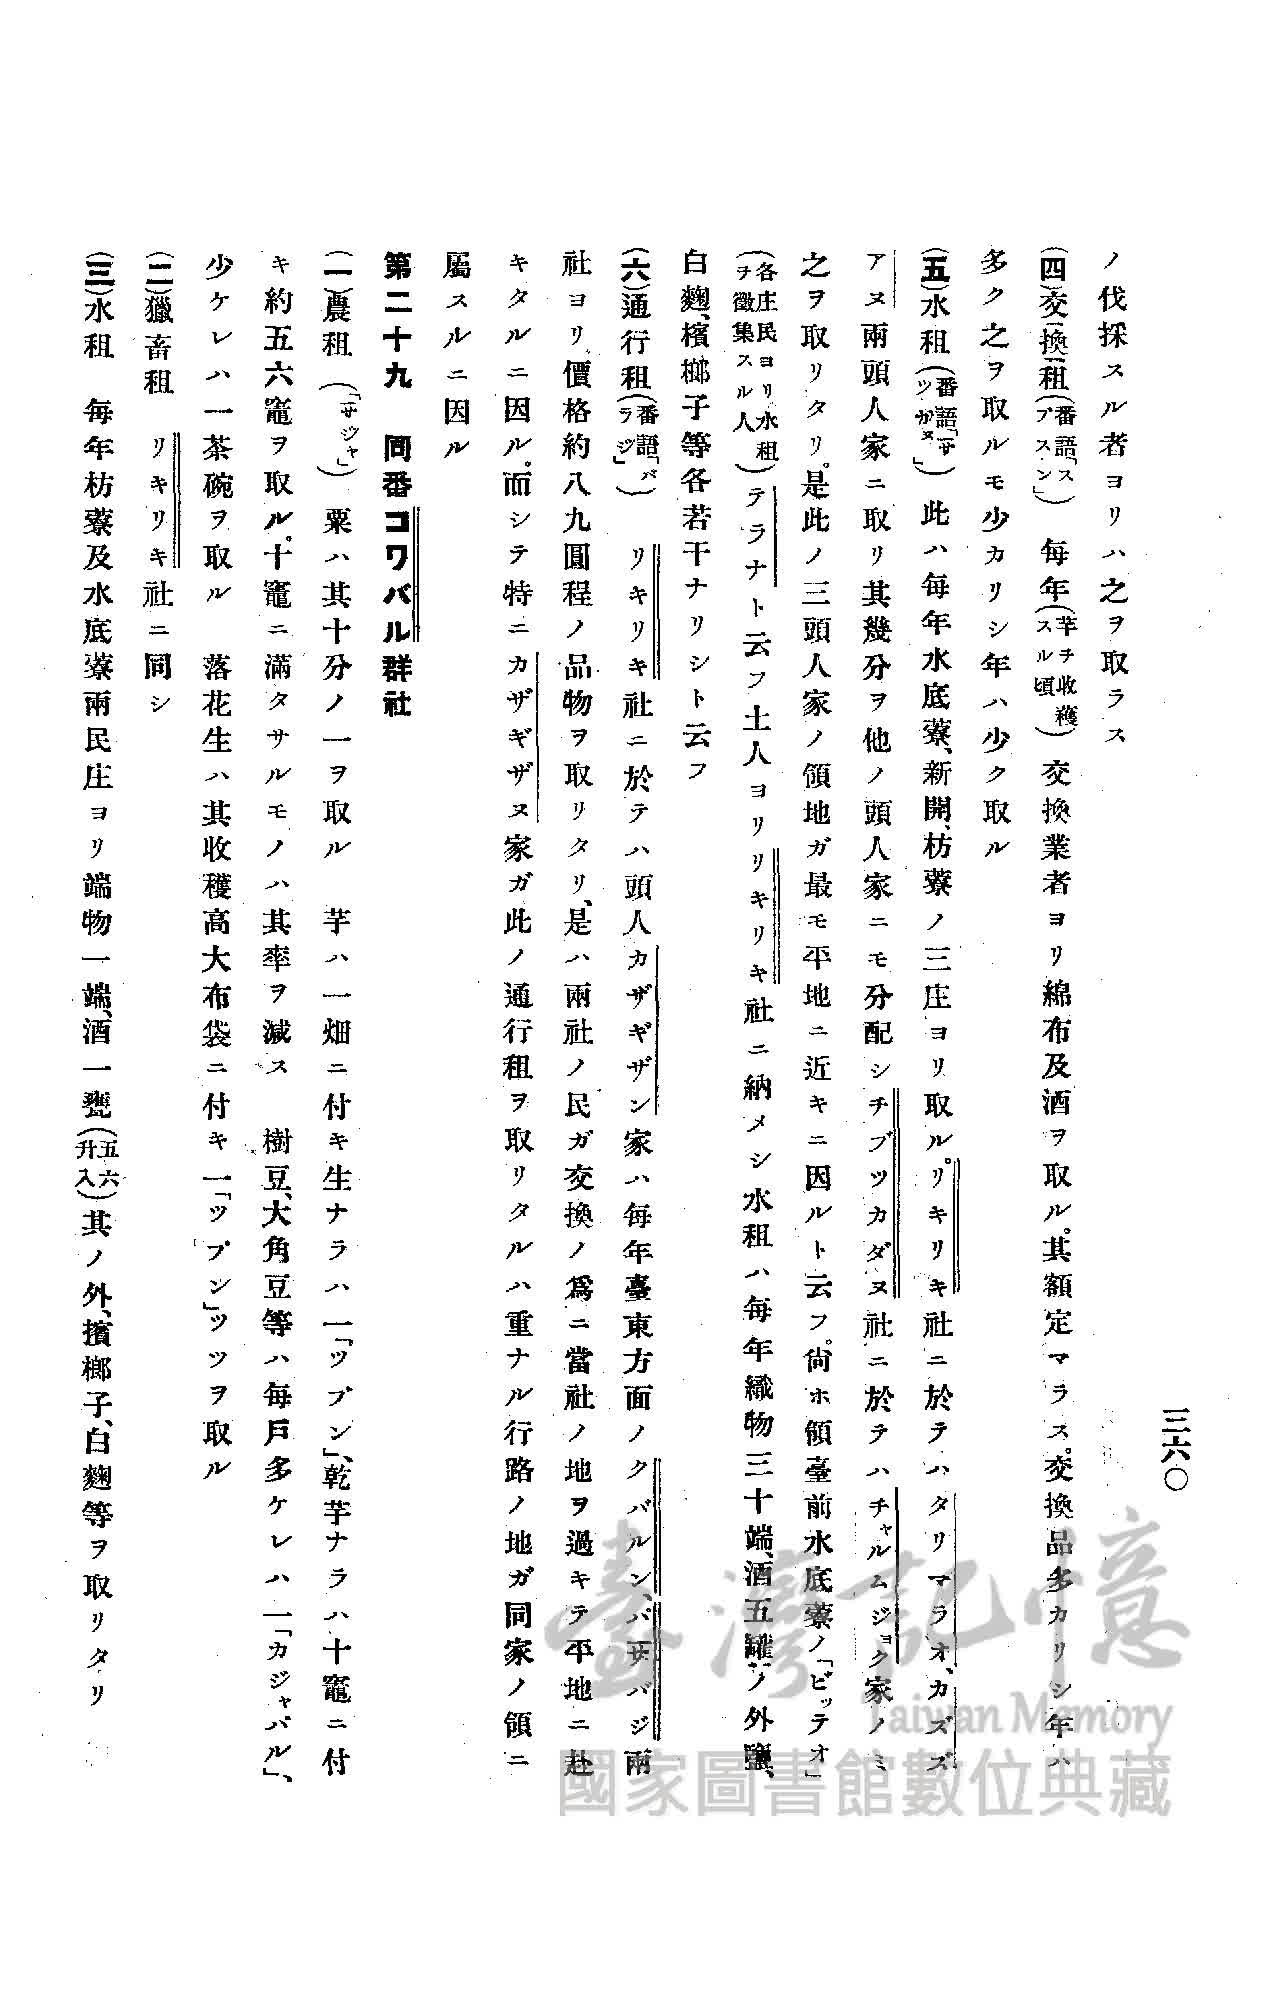 三六〇
ノ伐採スル者ヨリハ之ヲ取ラス
(四)交換租(番語「スプスン」) 毎年(芋ヲ收穫スル頃)交換業者ヨリ綿布及酒ヲ取ル。其額定マラス。交換品多カリシ年ハ
多ク之ヲ取ルモ少カリシ年ハ少ク取ル
(五)水租(番語「サツガヌ」) 此ハ毎年水底藔、新開、枋藔ノ三庄ヨリ取ル。リキリキ社ニ於テハタリマラオ、カズズ
アヌ兩頭人家ニ取リ其幾分ヲ他ノ頭人家ニモ分配シチブツカダヌ社ニ於テハチャルムジョク家ノミ
之ヲ取リタリ。是此ノ三頭人家ノ領地ガ最モ平地ニ近キニ因ルト云フ。尙ホ領臺前水底藔ノ「ビッテオ」
(各庄民ヨリ水租ヲ徵集スル人)テラナト云フ土人ヨリリキリキ社ニ納メシ水租ハ毎年織物三十端、酒五罐ノ外鹽、
白麴、檳榔子等各若干ナリシト云フ
(六)通行租(番語「バラジ」) リキリキ社ニ於テハ頭人カザギザン家ハ毎年臺東方面ノクバルン、バサバジ兩
社ヨリ價格約八九圓程ノ品物ヲ取リタリ、是ハ兩社ノ民ガ交換ノ爲ニ當社ノ地ヲ過キテ平地ニ赴
キタルニ因ル。而シテ特ニカザギザヌ家ガ此ノ通行租ヲ取リタルハ重ナル行路ノ地ガ同家ノ領ニ
屬スルニ因ル
第二十九 同番コワバル群社
(一)農租(「サジャ」) 粟ハ其十分ノ一ヲ取ル 芋ハ一畑ニ付キ生ナラハ一「ツプン」、乾芋ナラハ十竈ニ付
キ約五六竈ヲ取ル。十竈ニ滿タサルモノハ其率ヲ減ス 樹豆、大角豆等ハ毎戶多ケレハ一「カジャバル」、
少ケレハ一茶碗ヲ取ル 落花生ハ其收穫高大布袋ニ付キ一「ツプン」ツツヲ取ル
(二)獵畜租 リキリキ社ニ同シ
(三)水租 毎年枋藔及水底藔兩民庄ヨリ端物一端、酒一甕(五六升入)其ノ外、檳榔子、白麴等ヲ取リタリ
臺灣記憶
Taiwan Memory
國家圖書館數位典藏